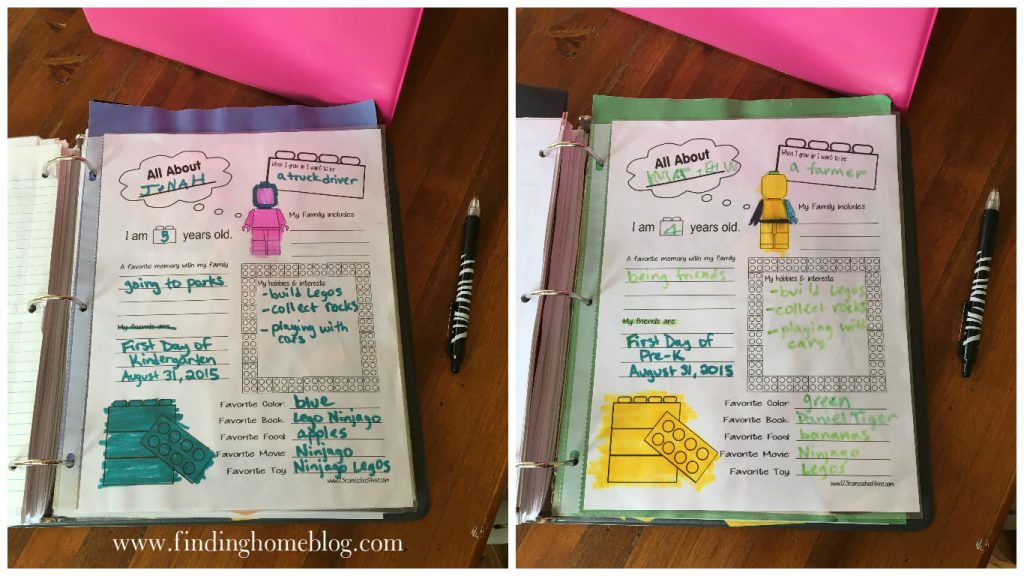 All About
JONAH
When I grow up I want to be
a truck driver
My Family includes
I am 5 years old.
A favorite memory with my family
going to parks
My hobbies & interests
-build Legos
-collect rocks
-playing with
cars
My friends are
First Day of
Kindergarten
August 31, 2015
Favorite Color: blue
Favorite Book: Lego Ninjago
Favorite Food: apples
Favorite Movie: Ninjago
Favorite Toy: Ninjago Legos
www.123homeschool4me.com
www.findinghomeblog.com
All About
When I grow up I want to be
a farmer
My Family includes
I am 4 years old.
A favorite memory with my family
being friends
My hobbies & interests
-build Legos
-collect rocks
-playing with
cars
My friends are
First Day of
Pre-K
August 31, 2015
Favorite Color: green
Favorite Book: Daniel Tiger
Favorite Food: bananas
Favorite Movie: Ninjago
Favorite Toy: Legos
www.123homeschool4me.com